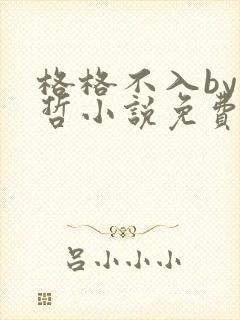 格格不入by
哲小說免費
呂小小小